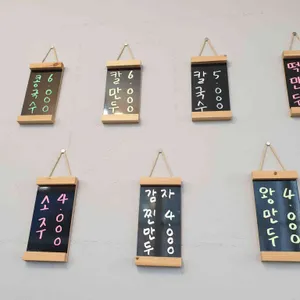 콩국수 6.000
칼만두 6.000
칼국수 5.000
떡만두
소주 4.000
감자찐만두 4.000
왕만두 4.000